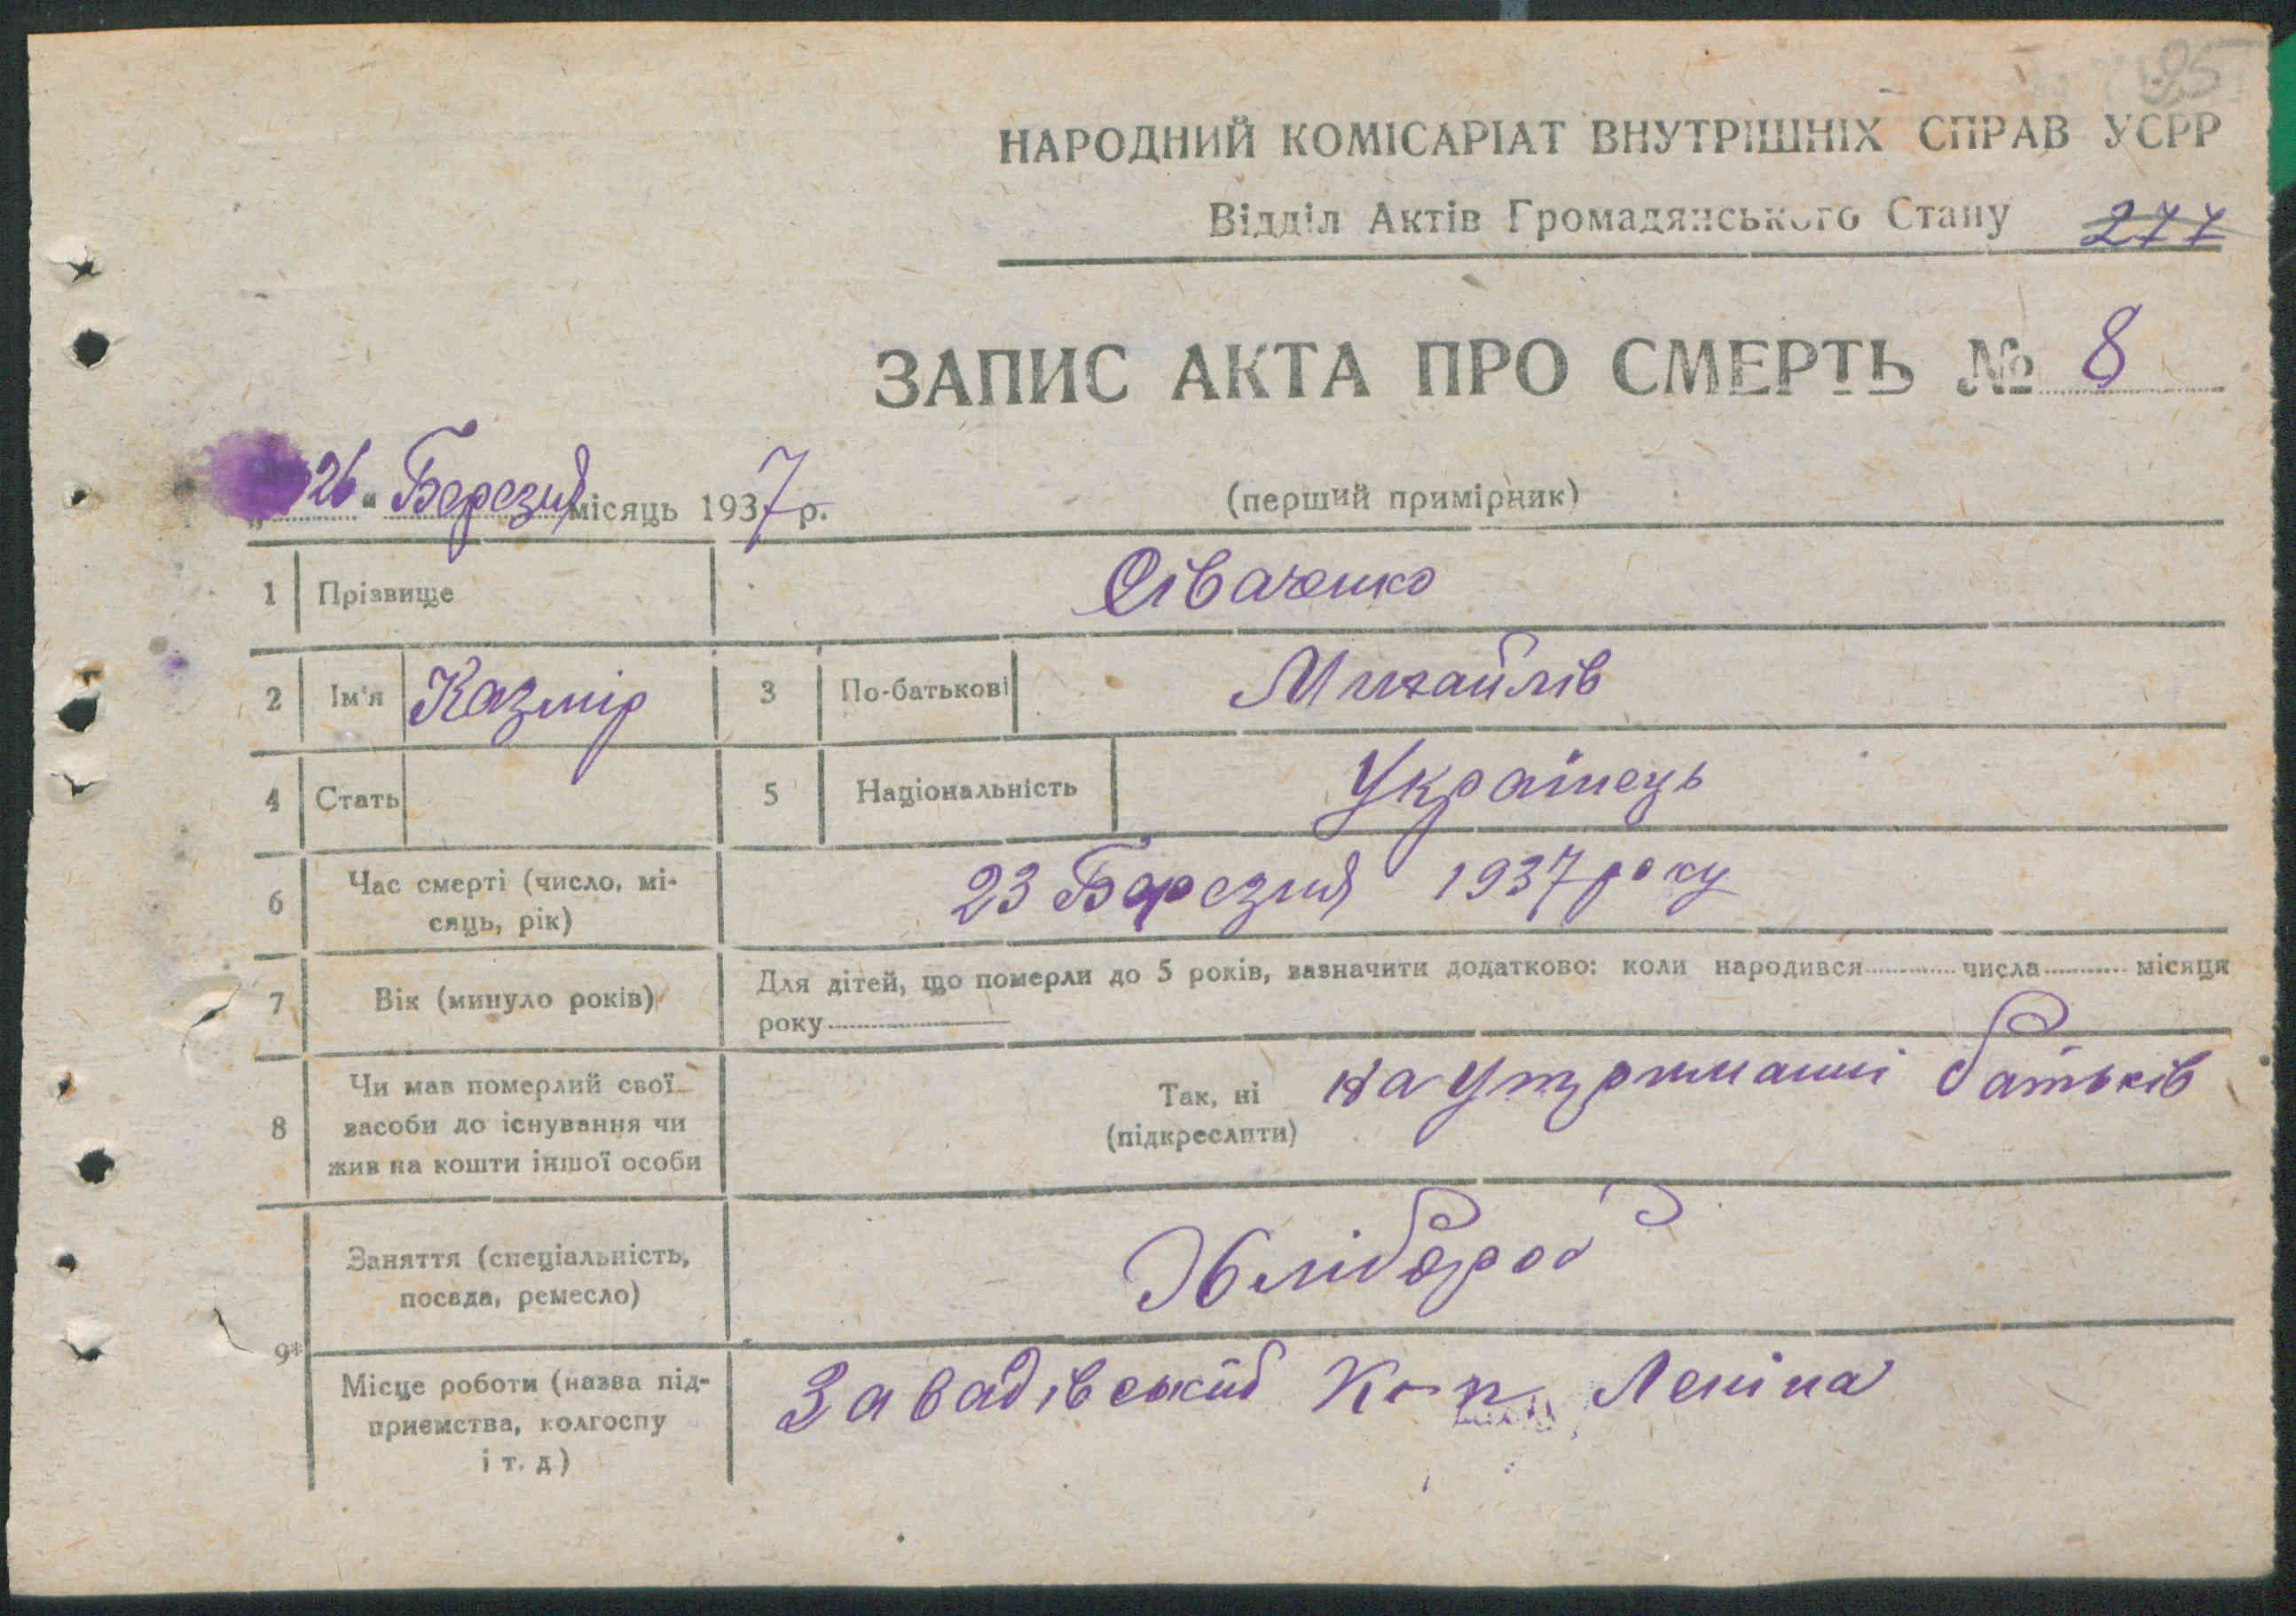 95
НАРОДНИЙ КОМІСАРІАТ ВНУТРІШНІХ СПРАВ УСРР
Відділ Актів Громадянського Стану 277
ЗАПИС АКТА ПРО СМЕРТЬ № 8
„26“ Березня місяць 1937 р. (перший примірник)
1 Прізвище Сіваченко
2 Ім'я Казмір 3 По-батькові Михайлів
4 Стать 5 Національність Українець
6 Час смерті (число, мі-
сяць, рік) 23 Березня 1937 року
7 Вік (минуло років) Для дітей, що померли до 5 років, зазначити додатково: коли народився числа місяця
року
8 Чи мав померлий свої
засоби до існування чи
жив на кошти іншої особи
Так, ні
(підкреслити) на утриманні батьків
Заняття (спеціальність,
посада, ремесло) Хлібороб
9*
Місце роботи (назва під-
приємства, колгоспу
і т. д) Завадівський К-п Леніна